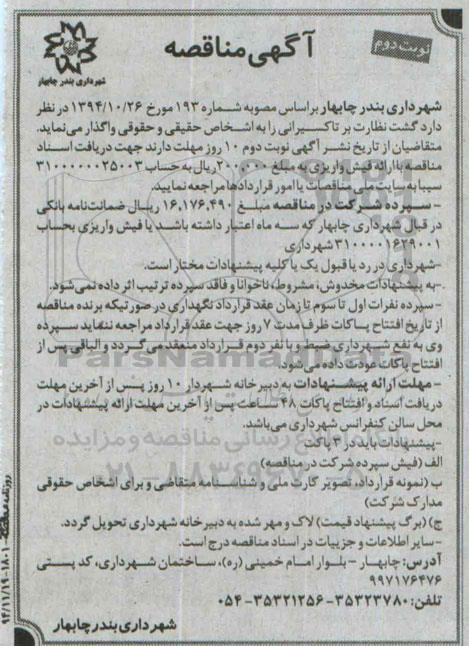 نوبت دوم
آگهی مناقصه
شهرداری بندر چابهار
شهرداری بندر چابهار براساس مصوبه شماره ۱۹۳ مورخ ۱۳۹۴/۱۰/۲۶ در نظر
دارد گشت نظارت بر تاکسیرانی را به اشخاص حقیقی و حقوقی واگذار می‌نماید.
متقاضیان از تاریخ نشر آگهی نوبت دوم ۱۰ روز مهلت دارند جهت دریافت اسناد
مناقصه با ارائه فیش واریزی به مبلغ ۲۰۰,۰۰۰ ریال به حساب ۳۱۰۰۰۰۰۰۲۵۰۰۳
سیبا به سایت ملی مناقصات یا امور قراردادها مراجعه نمایید.
- سپرده شرکت در مناقصه مبلغ ۱۶,۱۷۶,۴۹۰ ریال ضمانت‌نامه بانکی
در قبال شهرداری چابهار که سه ماه اعتبار داشته باشد یا فیش واریزی بحساب
۳۱۰۰۰۰۱۶۲۹۰۰۱ شهرداری
-شهرداری در رد یا قبول یک یا کلیه پیشنهادات مختار است.
-به پیشنهادات مخدوش، مشروط، ناخوانا و فاقد سپرده ترتیب اثر داده نمی‌شود.
-سپرده نفرات اول تا سوم تا زمان عقد قرارداد نگهداری در صورتیکه برنده مناقصه
از تاریخ افتتاح پاکات ظرف مدت ۷ روز جهت عقد قرارداد مراجعه ننماید سپرده
وی به نفع شهرداری ضبط و با نفر دوم قرارداد منعقد می‌گردد و الباقی پس از
افتتاح پاکات عودت داده می‌شود.
-مهلت ارائه پیشنهادات به دبیرخانه شهردار ۱۰ روز پس از آخرین مهلت
دریافت اسناد و افتتاح پاکات ۴۸ ساعت پس از آخرین مهلت ارائه پیشنهادات در
محل سالن کنفرانس شهرداری می‌باشد.
-پیشنهادات باید در ۳ پاکت
الف (فیش سپرده شرکت در مناقصه)
ب (نمونه قرارداد، تصویر کارت ملی و شناسنامه متقاضی و برای اشخاص حقوقی
مدارک شرکت)
ج) (برگ پیشنهاد قیمت) لاک و مهر شده به دبیرخانه شهرداری تحویل گردد.
-سایر اطلاعات و جزییات در اسناد مناقصه درج است.
آدرس: چابهار - بلوار امام خمینی (ره)، ساختمان شهرداری، کد پستی
۹۹۷۱۷۶۴۷۶
تلفن: ۳۵۳۲۳۷۸۰-۳۵۳۲۱۲۵۶-۰۵۴
شهرداری بندر چابهار
ParsNamadData
۰۲۱-۸۸۳۴۹۶۷۰